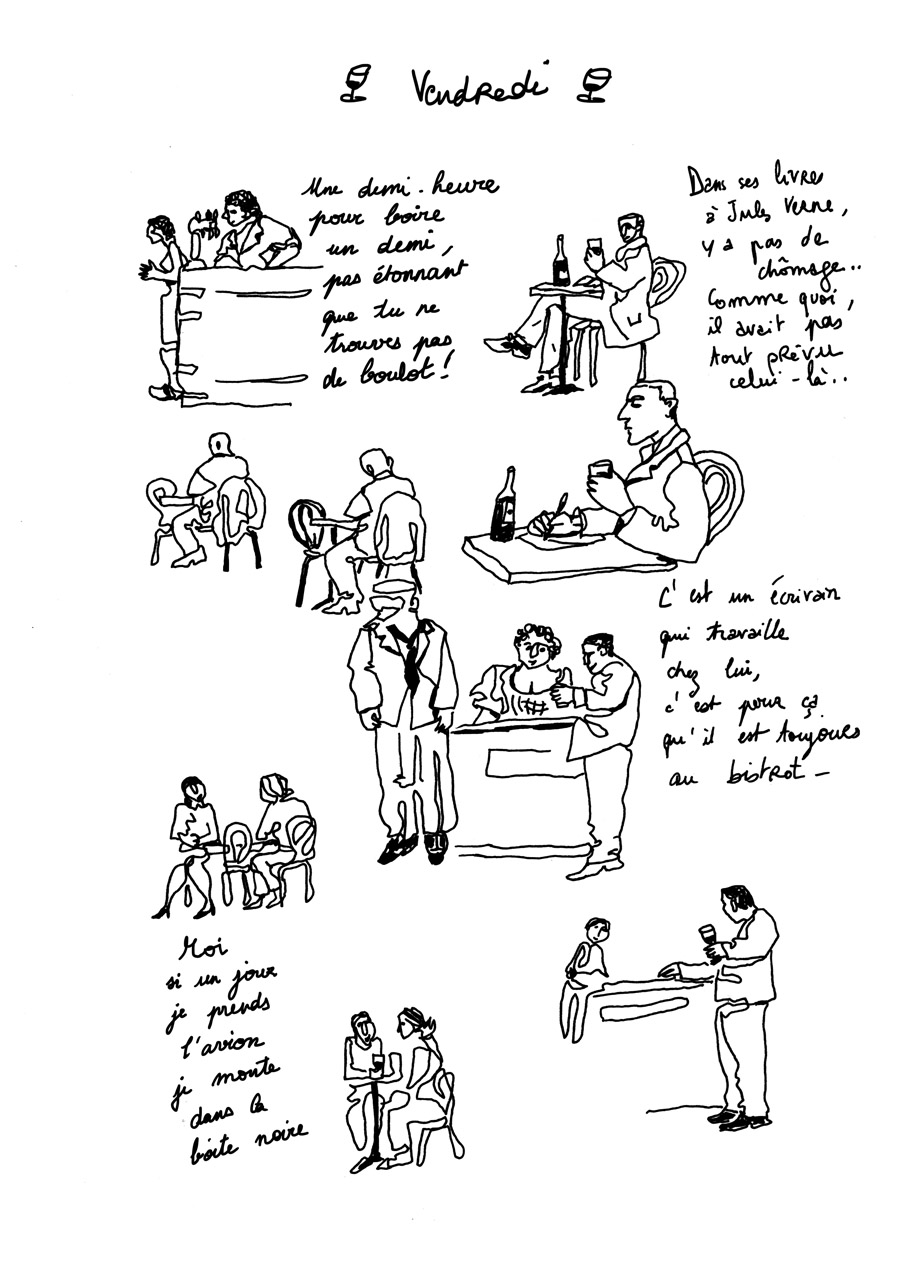 Vendredi
Une demi-heure
pour boire
un demi,
pas étonnant
que tu ne
trouves pas
de boulot!
Dans ses livres
à Jules Verne,
y a pas de
chômage..
Comme quoi,
il avait pas
tout prévu
celui-là..
C'est un écrivain
qui travaille
chez lui,
c'est pour ça
qu'il est toujours
au bistrot -
Moi
si un jour
je prends
l'avion
je monte
dans la
boîte noire